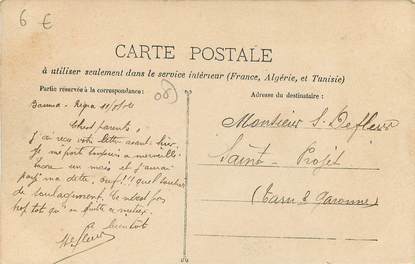 6 €
CARTE POSTALE
à utiliser seulement dans le service intérieur (France, Algérie, et Tunisie)
Partie réservée à la correspondance:
Adresse du destinataire:
08
Chers parents,
J'ai reçu votre lettre avant-hier.
Je me porte toujours à merveille
Encore un mois et j'aurai
payé ma dette. ouf!!! quel
de soulagement. Ce n'est pas
trop tôt qu'on quitte ce métier.
à bientôt
Monsieur S. Defleur
Saint-Projet
(Tarn & Garonne)